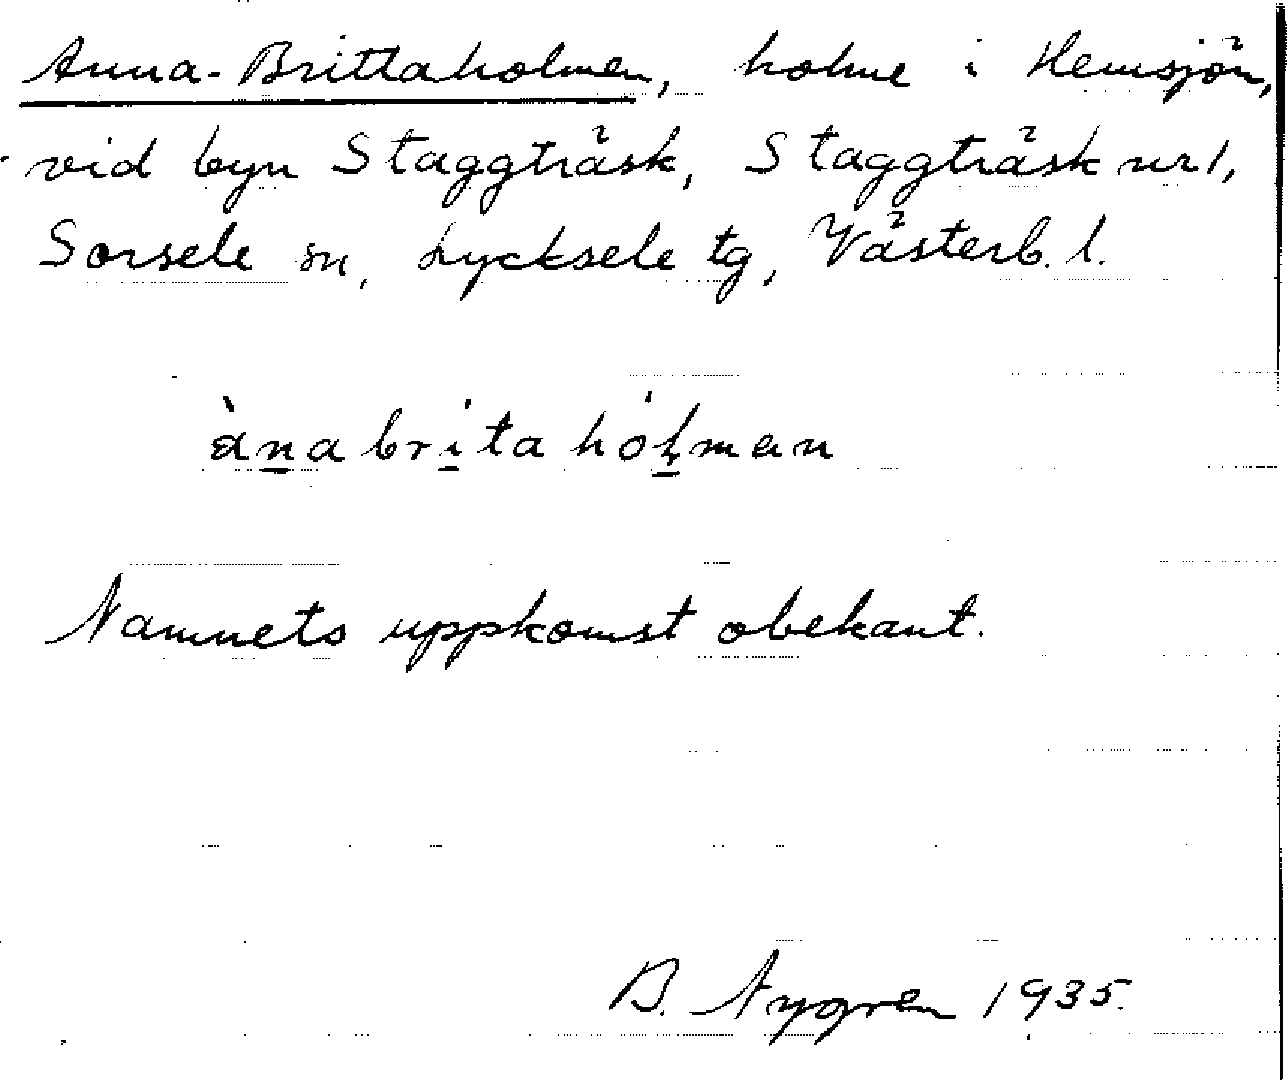 Anna-Brittaholmen, holme i Hemsjön,
vid byn Staggträsk, Staggträsk nr 1,
Sorsele sn, Lycksele tg, Västerb. l.
ànabrita hólmɘn
Namnets uppkomst obekant.
B. Nygren 1935.